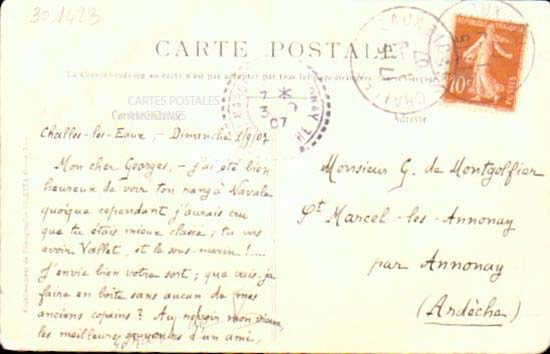 301423
CARTE POSTALE
La Correspondance au recto n'est pas acceptée par tous les pays étrangers
CARTES POSTALES
Correspondance
Adresse
10c
7 *
3 9
07
Challes-les-Eaux, - Dimanche 1/9/07
Mon cher Georges, - j'ai été bien
heureux de voir ton rang à Navale
quoique cependant j'aurais cru
que tu étais mieux classé; tu vas
avoir Vallet, et le sous-marin !....
J'envie bien votre sort; que vais-je
faire en boîte sans aucun de mes
anciens copains ? Au revoir mon vieux,
les meilleurs souvenirs d'un ami,
Monsieur G. de Montgolfier
St Marcel-les-Annonay
par Annonay
(Ardèche)